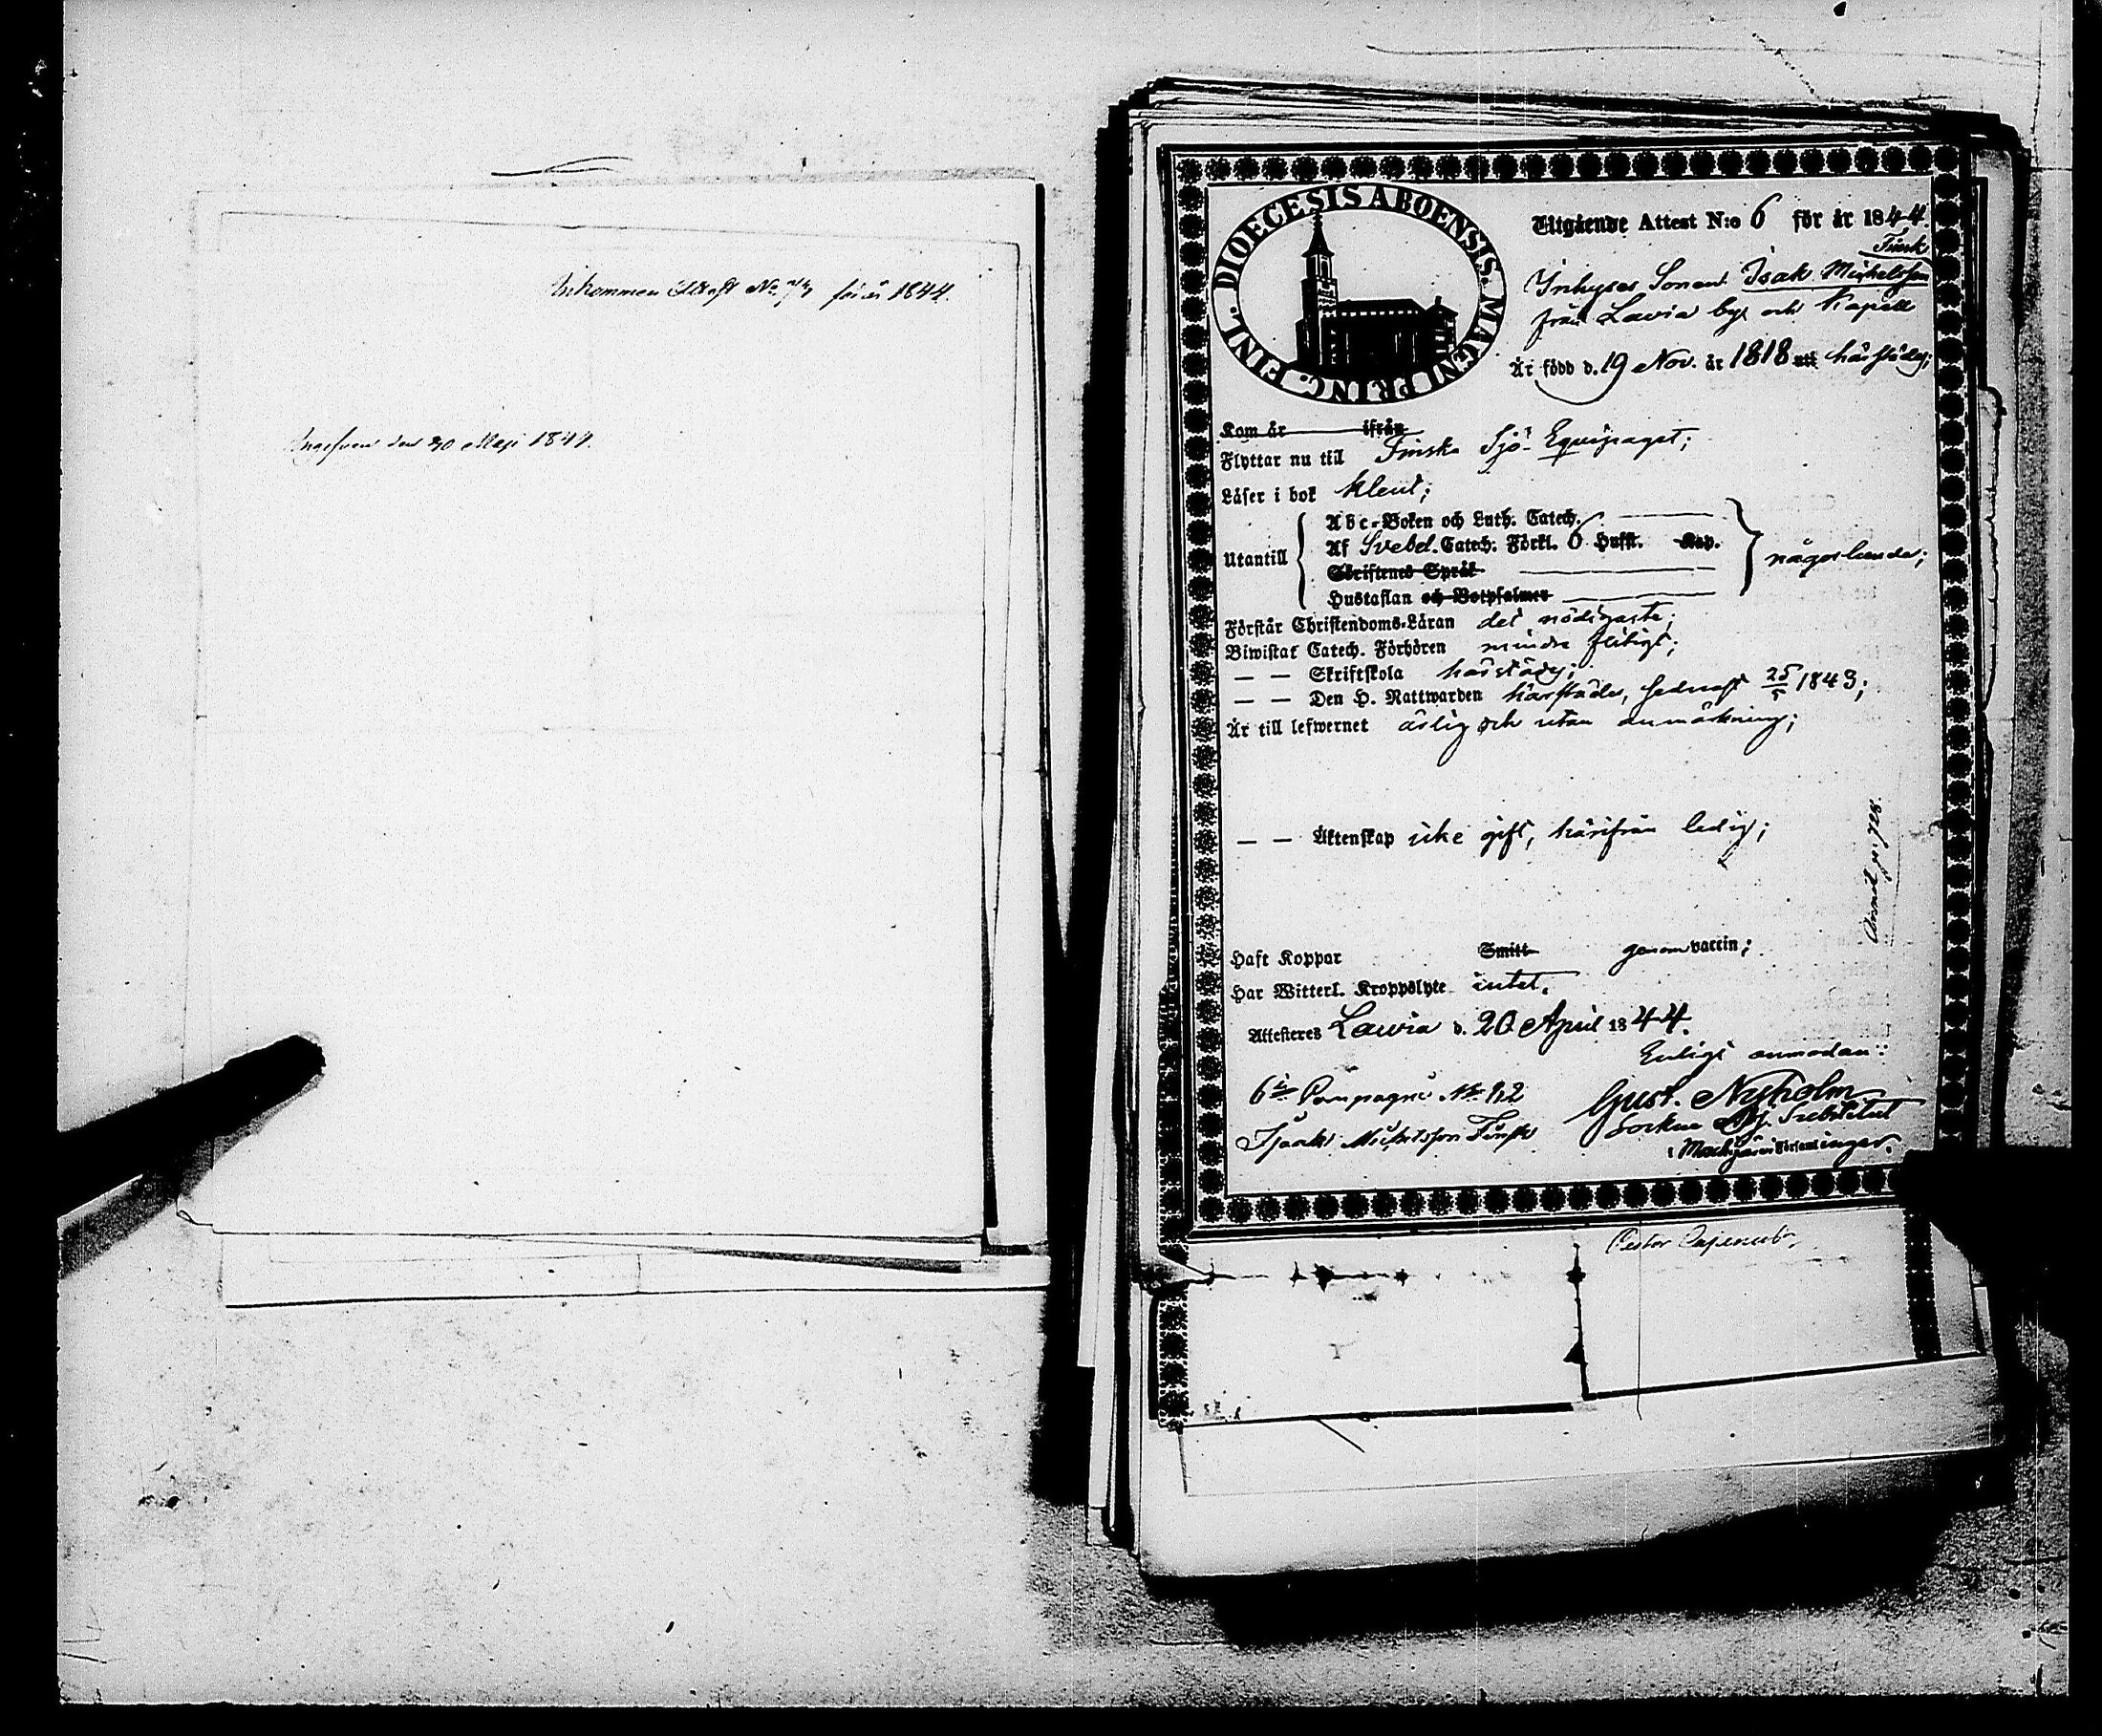 Inkommen Attest No för år 1844.
den 30 Maji 1844.
DIOECESIS ABOENSIS. MAGNI PRINC. FINL.
Utgående Attest N:o 6 för år 1844.
Funk
Inhyses Sonen Isak Michelsson
från Lavia by och Kapell
Är född d. 19 Nov. år 1818 uti härstädes;
Kom år ifrån
Flyttar nu till Finska Sjö-Equipaget;
Läser i bok klent;
Utantill
Abc-Boken och Luth. Catech.
Af Svebel. Catech. Förkl. 6 Hufst. Kap.
Skriftenes Språk
Hustaflan och Botpsalmer
någorlunda;
Förstår Christendoms-Läran det nödigaste;
Biwistat Catech. Förhören mindre flitigt;
— — Skriftskola härstädes;
— — Den H. Nattwarden härstädes, sednast 25/5 1843;
Är till lefwernet ärlig och utan anmärkning;
— — Äktenskap icke gift, härifrån ledig;
Haft Koppor Smitt genom vaccin;
Har Witterl. Kroppslyte intet.
Attesteres Lavia d. 20 April 1844.
Enligt anmodan:
6te Compagni No 92
Gust. Nyholm
Isaak Michelsson Funk
Sockne Adj. Substitut
i Mouhijärvi Församlingar.